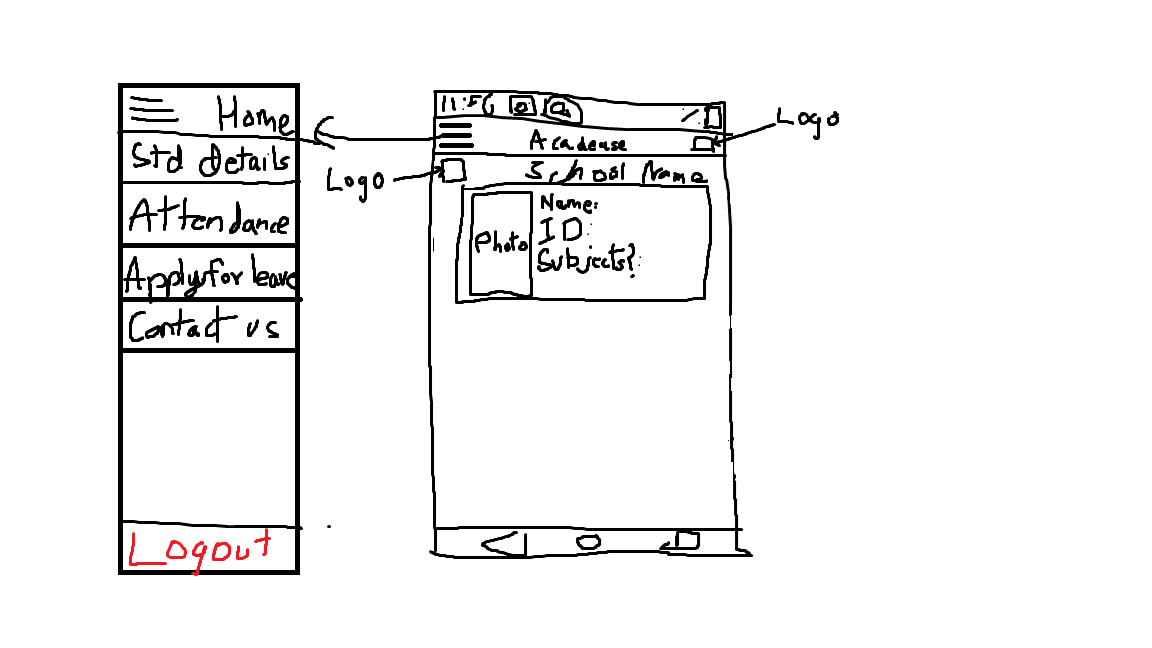 Home
Std details
Attendance
Apply for leave
Contact us
Logout
11:56
Acadease
Logo
Logo
School Name
Photo
Name:
ID:
Subjects?: